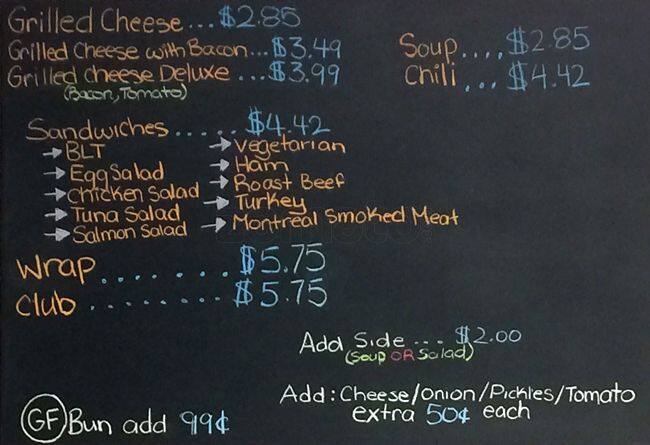 Grilled Cheese...$2.85
Grilled Cheese with Bacon...$3.49
Grilled cheese Deluxe...$3.99
(Bacon, Tomato)
Soup....$2.85
Chili...$4.42
Sandwiches.....$4.42
→ BLT
→ Egg Salad
→ Chicken Salad
→ Tuna Salad
→ Salmon Salad
→ Vegetarian
→ Ham
→ Roast Beef
→ Turkey
→ Montreal Smoked Meat
Wrap.......$5.75
Club........$5.75
Add Side...$2.00
(Soup OR Salad)
Add: Cheese/Onion/Pickles/Tomato
extra 50¢ each
GF Bun add 99¢